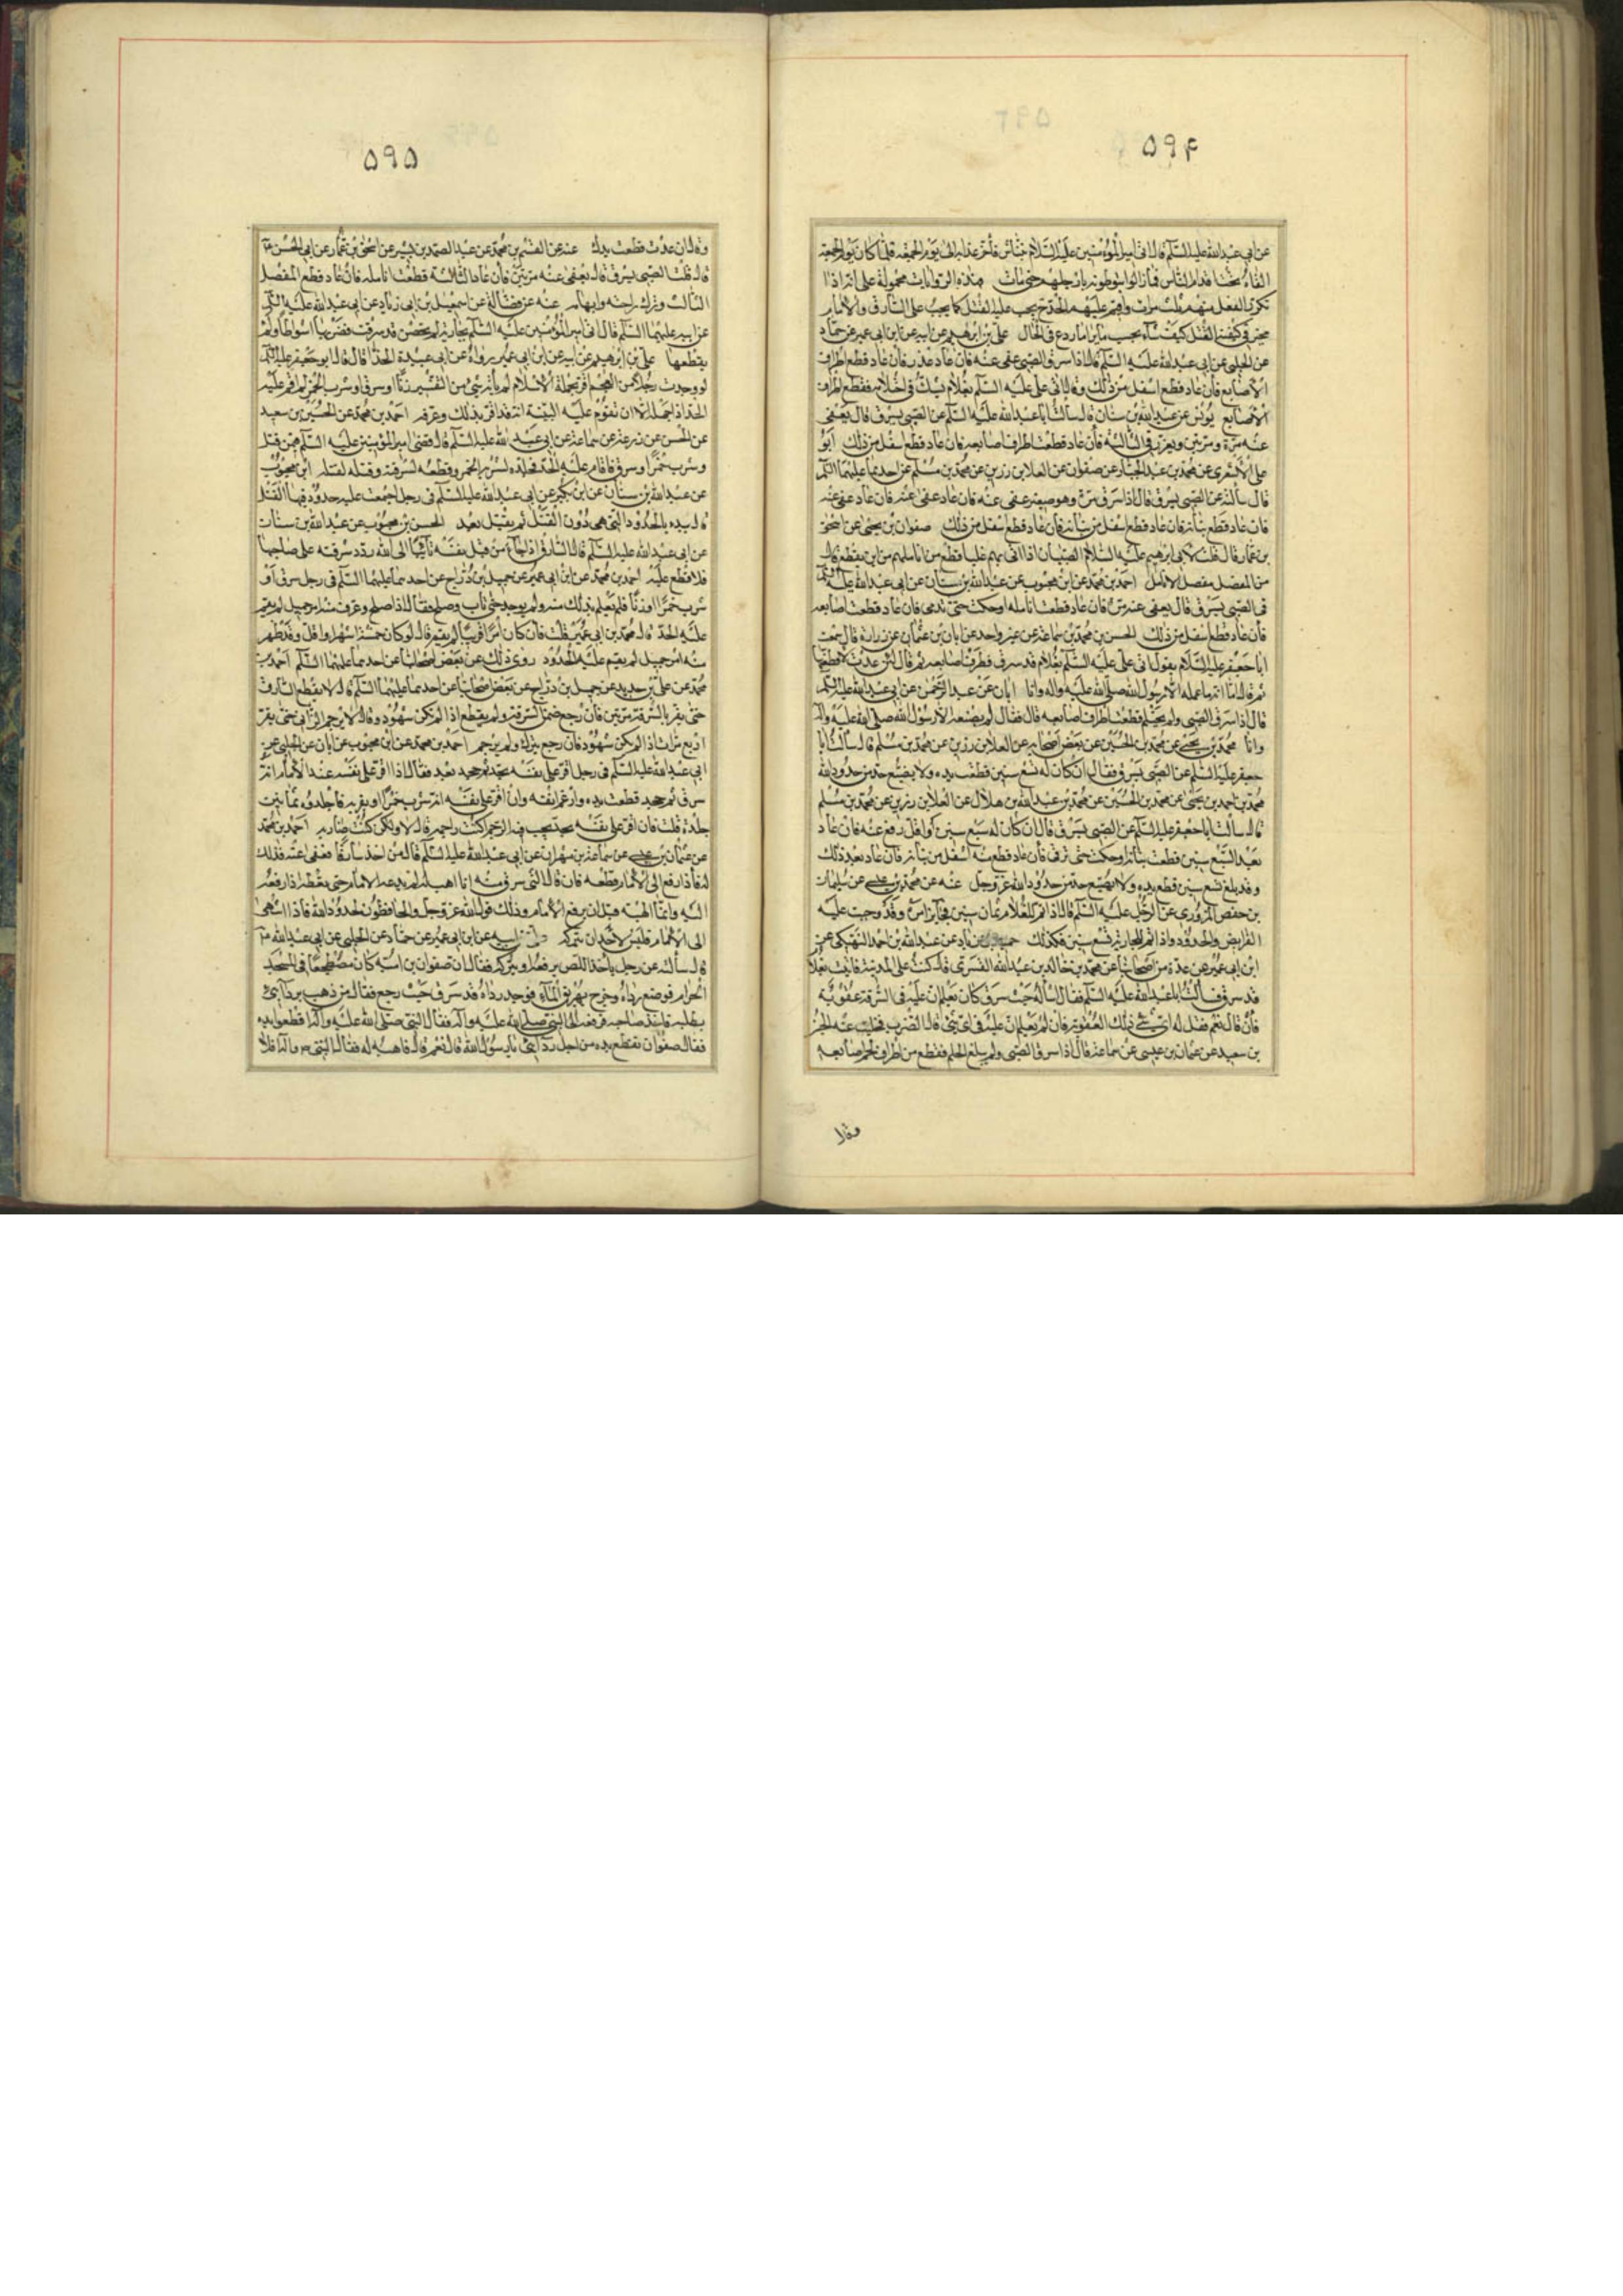 ۵۹۴
عن ابي عبدالله عليه السّلم قال اتي اميرالمؤمنين عليه السّلام بخنّاس فأخّر عذابه الى يوم الجمعة فلمّا كان يوم الجمعة
القاه تحت اقدام النّاس فمازالوا يتوطونه بارجلهم حتى مات هذه الروايات محمولة على انّه اذا
تكرّر الفعل منهم ثلث مرات واقيم عليهم الحدّ يجب عليه القتل كما يجب على السّارق والامام
مخيّر في كيفية القتل كيف شاء بحسب ما يراه اردع في الحال علي بن ابرهيم عن ابيه عن ابن ابي عمير عن حمّاد
عن الحلبي عن ابي عبدالله عليه السّلم قال اذا سرق الصّبي عفي عنه فان عاد عذر فان عاد قطع اطراف
الاصابع فان عاد قطع اسفل من ذلك وقال اتي علي عليه السّلم بغلام يشكّ في احتلامه فقطع اطراف
الاصابع يونس عن عبدالله بن سنان قال سألت اباعبدالله عليه السّلم عن الصّبي يسرق قال يعفى
عنه مرّة ومرّتين ويعزّر في الثّالثة فان عاد قطعت اطراف اصابعه فان عاد قطع اسفل من ذلك ابو
علي الاشعري عن محمّد بن عبدالجبّار عن صفوان عن العلا بن رزين عن محمّد بن مسلم عن احدهما عليهما السّلم
قال سألته عن الصّبي يسرق قال اذا سرق مرّة وهو صغير عفي عنه فان عاد عفي عنه فان عاد عفي عنه
فان عاد قطع بنانه فان عاد قطع اسفل من بنانه فان عاد قطع اسفل من ذلك صفوان بن يحيى عن اسحق
بن عمّار قال قلت لابي ابرهيم عليه السّلام الصّبيان اذا اتي بهم عليا قطع من اناملهم من اين يقطع قال
من المفصل مفصل الانامل احمد بن محمّد عن ابن محبوب عن عبدالله بن سنان عن ابي عبدالله عليه السّلم
في الصّبي يسرق قال يعفى عنه مرّة فان عاد قطعت انامله او حكّت حتّى تدمى فان عاد قطعت اصابعه
فان عاد قطع اسفل من ذلك الحسن بن محمّد بن سماعة عن غير واحد عن ابان بن عثمان عن زرارة قال سمعت
اباجعفر عليه السّلام يقول اتي علي عليه السّلم بغلام قد سرق فطرّف اصابعه ثم قال لئن عدت لاقطعنّها
ثم قال امّا انه ما عمله الا رسول الله صلّى الله عليه واله وانا ابان عن عبدالرّحمن عن ابي عبدالله عليه السّلم
قال اذا سرق الصّبي ولم يحتلم قطعت اطراف اصابعه قال فقال لم يصنعه الا رسول الله صلّى الله عليه وآله
وانا محمّد بن يحيى عن محمّد بن الحسين عن بعض اصحابه عن العلا بن رزين عن محمّد بن مسلم قال سألت ابا
جعفر عليه السّلم عن الصّبي يسرق فقال ان كان له تسع سنين قطعت يده ولا يضيّع حدّ من حدود الله
محمّد بن احمد بن يحيى عن محمّد بن الحسين عن محمّد بن عبدالله بن هلال عن العلا بن رزين عن محمّد بن مسلم
قال سألت اباجعفر عليه السّلم عن الصّبي يسرق قال ان كان له سبع سنين او اقلّ رفع عنه فان عاد
بعد السّبع سنين قطعت بنانه او حكّت حتّى تدمى فان عاد قطع منه اسفل من بنانه فان عاد بعد ذلك
وقد بلغ تسع سنين قطع يده ولا يضيّع حدّ من حدود الله عزّوجلّ عنه عن محمّد بن عيسى عن سليمان
بن حفص المروزي عن الرّجل عليه السّلم قال اذا تمّ للغلام ثمان سنين فجائز امره وقد وجبت عليه
الفرايض والحدود واذا تمّ للجارية تسع سنين فكذلك حميد بن زياد عن عبدالله بن احمد النهيكي عن
ابن ابي عمير عن عدّة من اصحابنا عن محمّد بن خالد بن عبدالله القسري قال كنت على المدينة فاتيت بغلام
قد سرق فسألت اباعبدالله عليه السّلم فقال سأله حيث سرق كان يعلم ان عليه في السّرقة عقوبة
فان قال نعم فقل له اي شئ تلك العقوبة فان لم يعلم ان عليه في السرقة قطعا فخلّ عنه
بن سعيد عن عثمان بن عيسى عن سماعة قال اذا سرق الصّبي ولم يبلغ الحلم فقطع من اطراف اصابعه
وقال
۵۹۵
وقال ان عدت قطعت يدك عنه عن القسم بن محمّد عن عبدالصمد بن بشير عن اسحق بن عمّار عن ابي الحسن
قال قلت الصّبي يسرق قال يعفى عنه مرّتين فان عاد الثّالثة قطعت انامله فان عاد قطع المفصل
الثّالث وترك راحته وابهامه عنه عن فضالة عن اسمعيل بن ابي زياد عن ابي عبدالله عليه السّلم
عن ابيه عليهما السّلم قال اتي اميرالمؤمنين عليه السّلم بجارية لم تحض قد سرقت فضربها اسواطا ولم
يقطعها علي بن ابرهيم عن ابيه عن ابن ابي عمير رواه عن ابي عبيدة الحذّا قال قال ابوجعفر عليه السّلم
لو وجدت رجلا من العجم اقرّ بجملة الاسلام لم يأته شئ من التّفسير زنا او سرق او شرب الخمر لم اقم عليه
الحدّ اذا جهله الا ان تقوم عليه البيّنة انه قد اقرّ بذلك وعرفه احمد بن محمّد عن الحسين بن سعيد
عن الحسن عن زرعة عن سماعة عن ابي عبدالله عليه السّلم قال قضى اميرالمؤمنين عليه السّلم فيمن قتل
وشرب خمرا وسرق فاقام عليه الحدّ فجلده لشربه الخمر وقطعه لسرقته وقتله لقتله ابن محبوب
عن عبدالله بن سنان عن ابن بكير عن ابي عبدالله عليه السّلم في رجل اجتمعت عليه حدود فيها القتل
قال يبدء بالحدود التي هي دون القتل ثم يقتل بعد الحسن بن محبوب عن عبدالله بن سنان
عن ابي عبدالله عليه السّلم قال السّارق اذا جاء من قبل نفسه تائبا الى الله وردّ سرقته على صاحبها
فلا قطع عليه احمد بن محمّد عن ابن ابي عمير عن جميل بن درّاج عن احدهما عليهما السّلم في رجل سرق او
شرب خمرا او زنا فلم يعلم بذلك منه ولم يوجد حتّى تاب وصلح فقال اذا صلح وعرف منه امر جميل لم يقم
عليه الحدّ قال محمّد بن ابي عمير قلت فان كان امرا قريبا لم يقم قال لو كان خمسة اشهر او اقلّ وقد ظهر
منه امر جميل لم يقم عليه الحدود روى ذلك عن بعض اصحابنا عن احدهما عليهما السّلم احمد بن
محمّد عن علي بن حديد عن جميل بن درّاج عن بعض اصحابنا عن احدهما عليهما السّلم قال لا يقطع السّارق
حتّى يقرّ بالسّرقة مرّتين فان رجع ضمن السّرقة ولم يقطع اذا لم يكن شهود وقال لا يرجم الزّاني حتّى يقرّ
اربع مرّات اذا لم يكن شهود فان رجع ترك ولم يرجم احمد بن محمد عن ابن محبوب عن ابان عن الحلبي عن
ابي عبدالله عليه السّلم في رجل اقرّ على نفسه بحدّ ثم جحد بعد فقال اذا اقرّ على نفسه عند الامام انه
سرق ثم جحد قطعت يده وان رغم انفه وان اقرّ على نفسه انه شرب خمرا او بفرية فاجلدوه ثمانين
جلدة قلت فان اقرّ على نفسه بحدّ يجب فيه الرّجم اكنت راجمه قال لا ولكن كنت ضاربه احمد بن محمّد
عن عثمان بن عيسى عن سماعة بن مهران عن ابي عبدالله عليه السّلم قال من اخذ سارقا فعفى عنه فذلك
له فاذا رفع الى الامام قطعه فان قال الّذي سرق منه انا اهب له لم يدعه الامام حتى يقطعه اذا رفعه
اليه وانّما الهبة قبل ان يرفع الى الامام وذلك قول الله عزّوجلّ والحافظون لحدود الله فاذا انتهى
الى الامام فليس لاحد ان يتركه علي عن ابيه عن ابن ابي عمير عن حمّاد عن الحلبي عن ابي عبدالله
قال سألته عن رجل يأخذ اللص يرفعه او يتركه فقال ان صفوان بن اميّة كان مضطجعا في المسجد
الحرام فوضع رداه وخرج يهريق الماء فوجد رداه قد سرق حيث رجع فقال من ذهب بردائي
يطلبه فاخذ صاحبه فرفعه الى النبي صلى الله عليه وآله فقال النبي صلّى الله عليه وآله اقطعوا يده
فقال صفوان تقطع يده من اجل ردائي يا رسول الله قال نعم قال فاهبه له فقال النبي ص وآله فلا